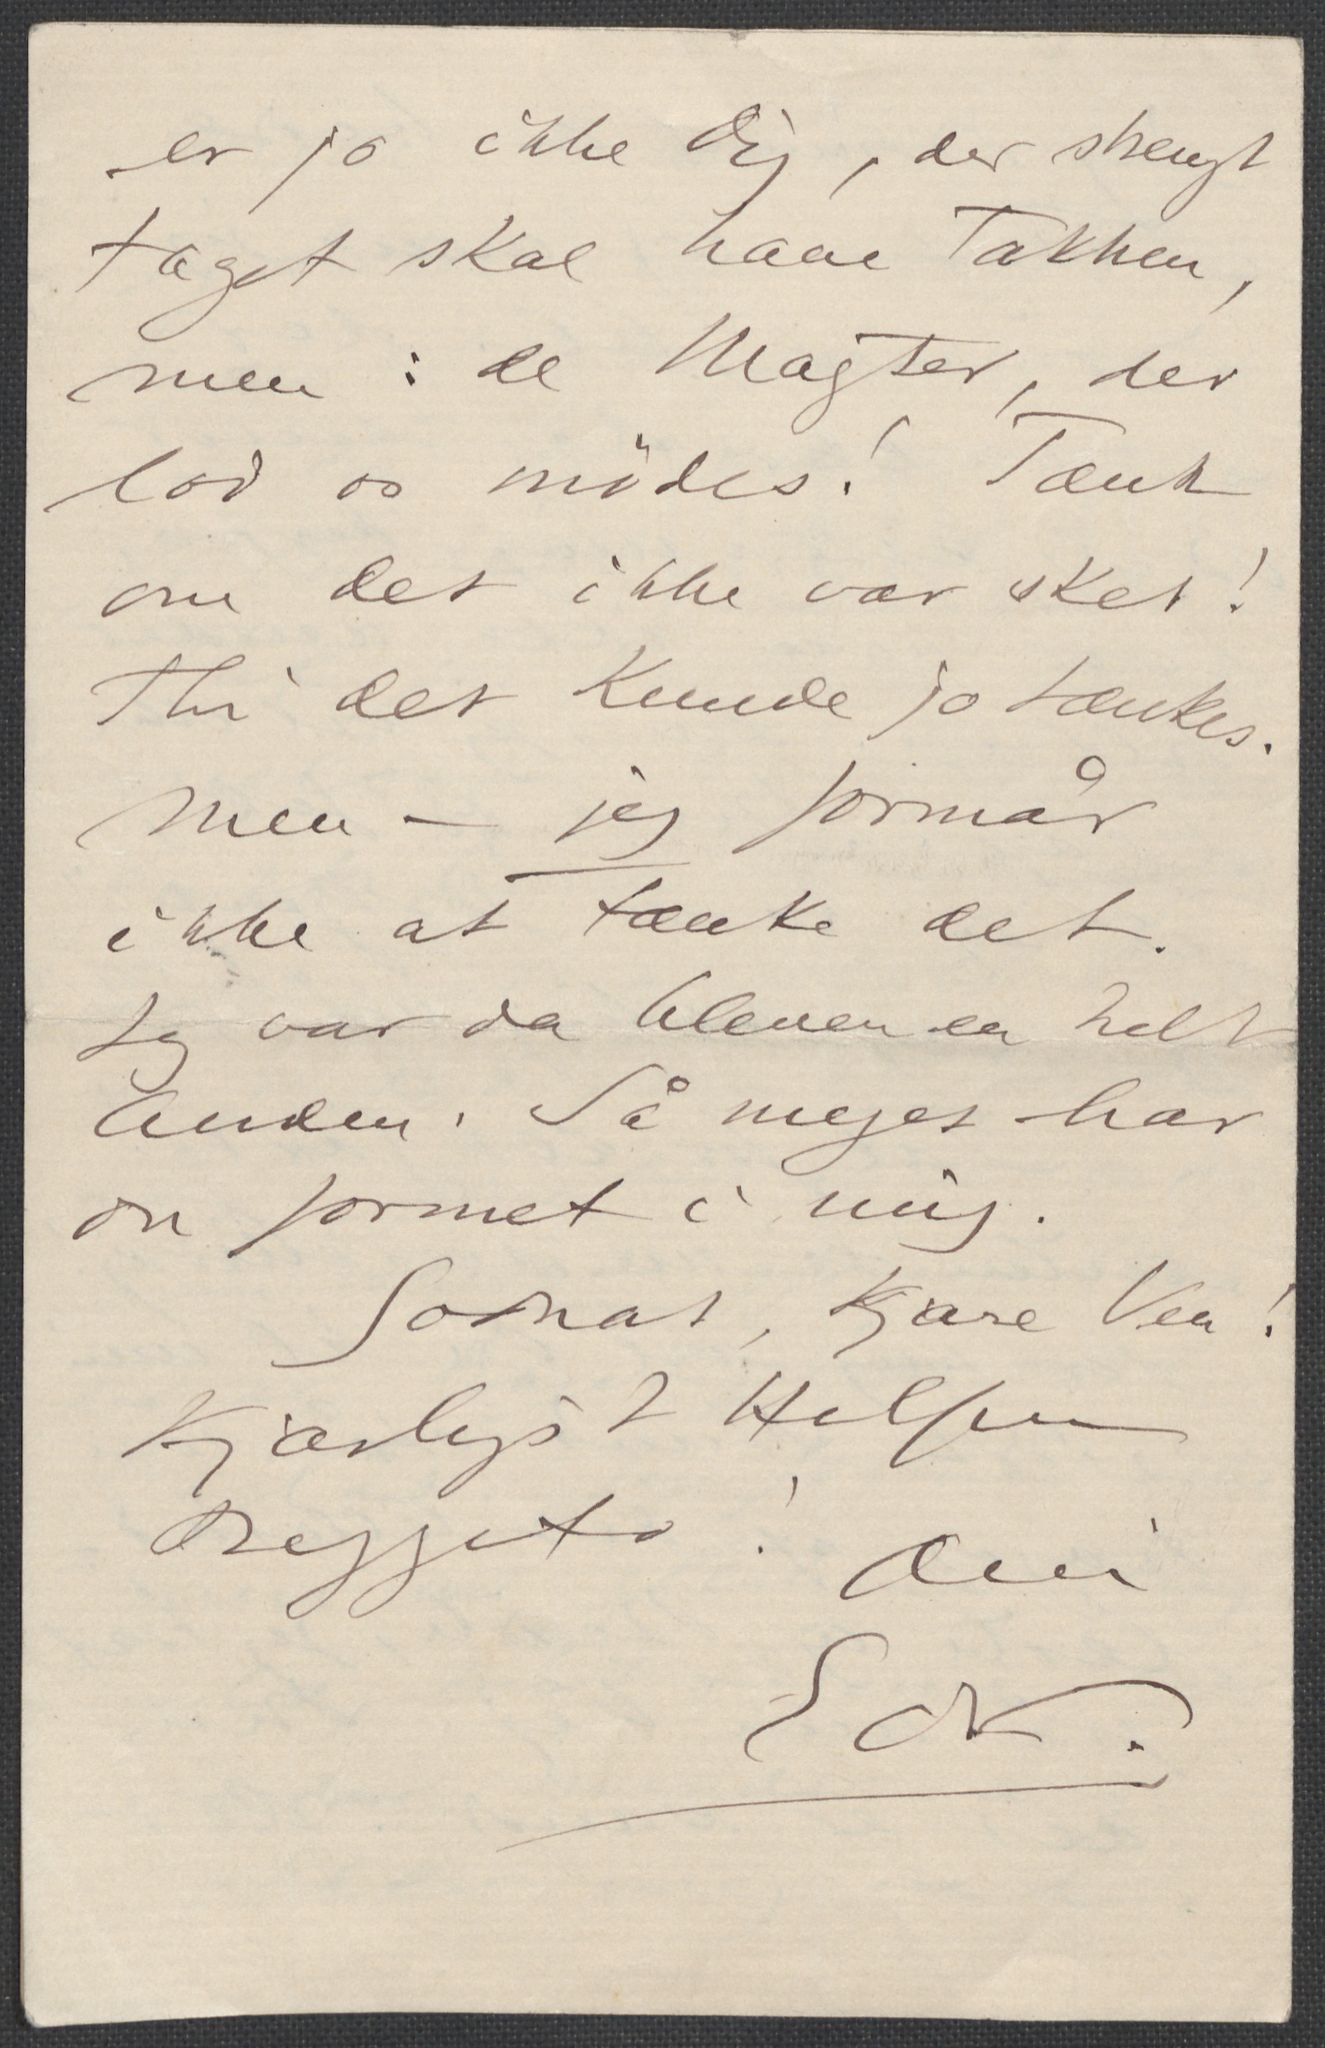 er jo ikke Dig, der strengt
taget skal have Takken,
men : de Magter, der
lod os mödes! Tænk
om det ikke var sket!
Thi det kunde jo tænkes.
Men – jeg formår
ikke at tænke det.
Jeg var da bleven en helt
Anden. Så meget har
Du formet i mig.
Godnat, kjære Ven!
Kjærligst Hilsen
Begge to! Din
EdV.